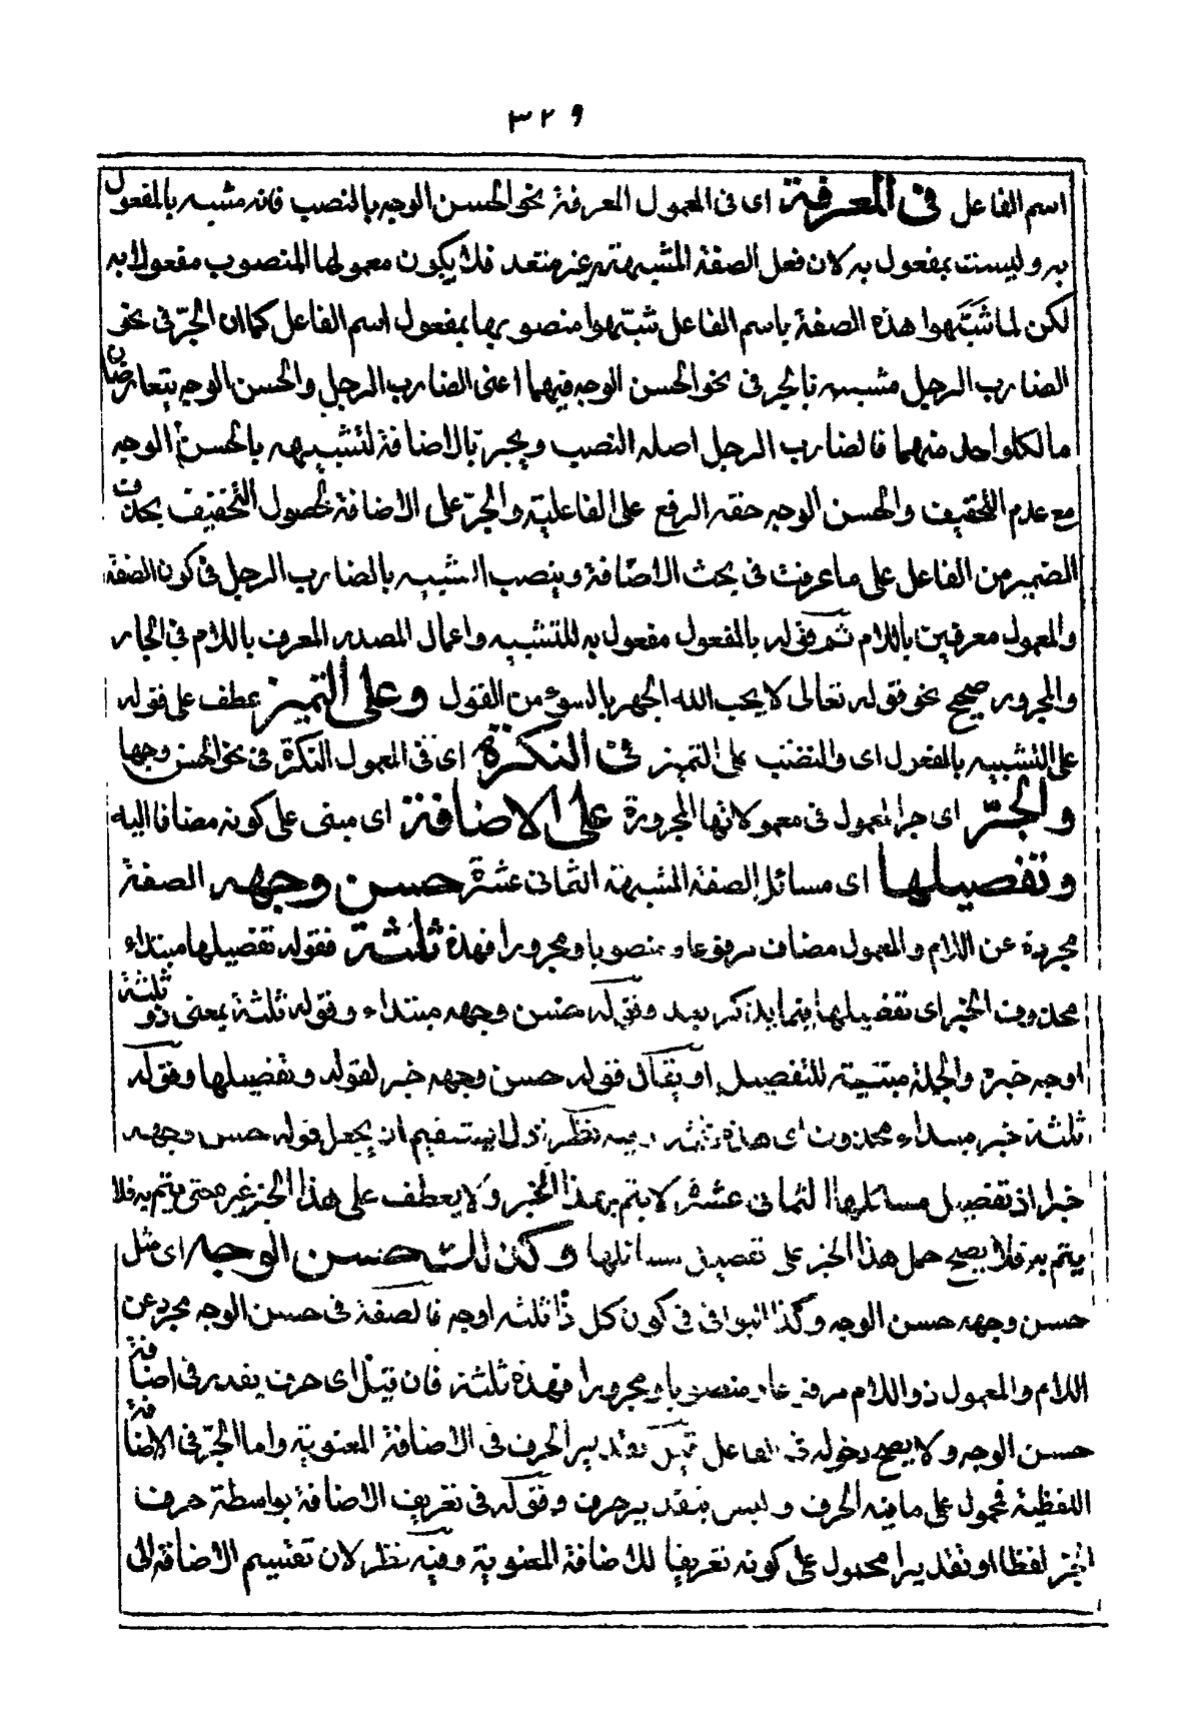 ٣٢٩
اسم الفاعل فى المعرفة اى فى المعمول المعرفة نحو الحسن الوجه بالنصب فانه مشبه بالمفعول
به وليست بمفعول به لان فعل الصفة المشبهة غير متعد فلا يكون معمولها المنصوب مفعولا به
لكن لما شبّهوا هذه الصفة باسم الفاعل شبّهوا منصوبها بمفعول اسم الفاعل كما ان الجرّ فى نحو
الضارب الرجل مشبه بالجر فى نحو الحسن الوجه فهما اعنى الضارب الرجل والحسن الوجه يتعارضان
ما لكل واحد منهما فالضارب الرجل اصله النصب ويجرّ بالاضافة لتشبيهه بالحسن الوجه
مع عدم التخفيف والحسن الوجه حقه الرفع على الفاعلية والجرّ على الاضافة لحصول التخفيف بحذف
الضمير من الفاعل على ما عرفت فى بحث الاضافة وينصب لتشبيه بالضارب الرجل فى كون الصفة
والمعمول معرفين باللام ثم قوله بالمفعول مفعول به للتشبيه واعمال المصدر المعرف باللام فى الجار
والمجرور صحيح نحو قوله تعالى لا يحب الله الجهر بالسوء من القول وعلى التميز عطف على قوله
على التشبيه بالمفعول اى والنصب على التميز فى النكرة اى فى المعمول النكرة فى نحو الحسن وجها
والجرّ اى جر المعمول فى معمولاتها المجرورة على الاضافة اى مبنى على كونه مضافا اليه
وتفصيلها اى مسائل الصفة المشبهة الثمانى عشرة حسن وجهه الصفة
مجردة عن اللام والمعمول مضاف مرفوعا ومنصوبا ومجرورا فهذه ثلثة فقوله تفصيلها مبتداء
محذوف الخبر اى تفصيلها فيما يذكر بعد وقوله حسن وجهه مبتداء وقوله ثلثة بمعنى ذو ثلثة
اوجه خبره والجملة مبينة للتفصيل او يقال قوله حسن وجهه خبر لقوله وتفصيلها وقوله
ثلثة خبر مبتداء محذوف اى هذه ثلثة وفيه نظر اذ لا يستقيم ان يجعل قوله حسن وجهه
خبرا اذ تفصيل مسائلها الثمانى عشرة لا يتم بهذا الخبر ولا يعطف على هذا الخبر غيره حتى يتم به فلا
يتم به فلا يصح حمل هذا الخبر على تفصيل مسائلها وكذلك حسن الوجه اى مثل
حسن وجهه حسن الوجه وكذا البواقى فى كون كل ذا ثلثه اوجه فالصفة فى حسن الوجه مجرد عن
اللام والمعمول ذو اللام مرفوعا ومنصوبا ومجرورا فهذه ثلثة فان قيل اى حرف يقدر فى اضافة
حسن الوجه ولا يصح دخوله فى الفاعل قيل تقدير الحرف فى الاضافة المعنوية واما الجرّ فى الاضافة
اللفظية فمحمول على ما فيه الحرف وليس بتقدير حرف وقوله فى تعريف الاضافة بواسطة حرف
الجر لفظا او تقديرا محمول على كونه تعريفا للاضافة المعنوية وفيه نظر لان تقسيم الاضافة الى